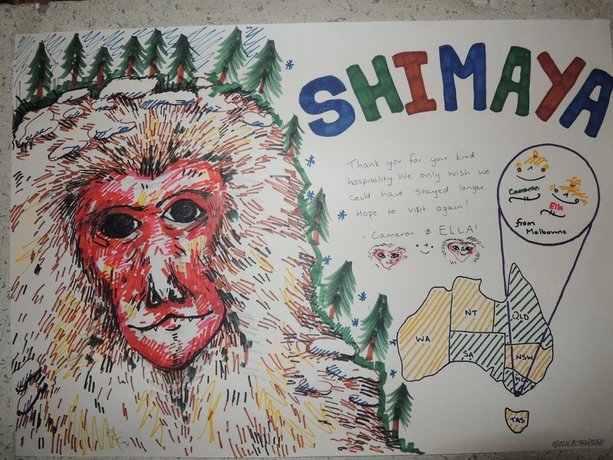 SHIMAYA
Thank you for your kind
hospitality. We only wish we
could have stayed longer.
Hope to visit again!
- Cameron & ELLA!
Cameron
Ella
from
Melbourne
WA
NT
QLD
SA
NSW
TAS